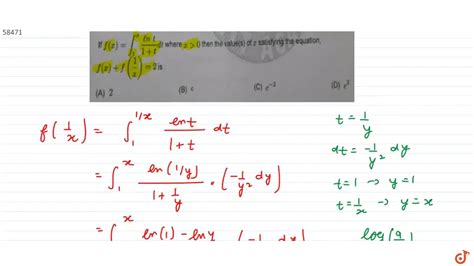 58471
If f(x) = ∫₁ˣ ln t / 1+t dt where x > 0 then the value(s) of x satisfying the equation,
f(x) + f(1/x) = 2 is :
(A) 2 (B) e (C) e⁻² (D) e²
f(1/x) = ∫₁^{1/x} ln t / 1+t dt
t = 1/y
dt = -1/y² dy
= ∫₁ˣ ln(1/y) / 1+1/y · (-1/y² dy)
t=1 → y=1
t=1/x → y=x
= ∫₁ˣ ln(1) - ln y (-1 dy)
log(a/